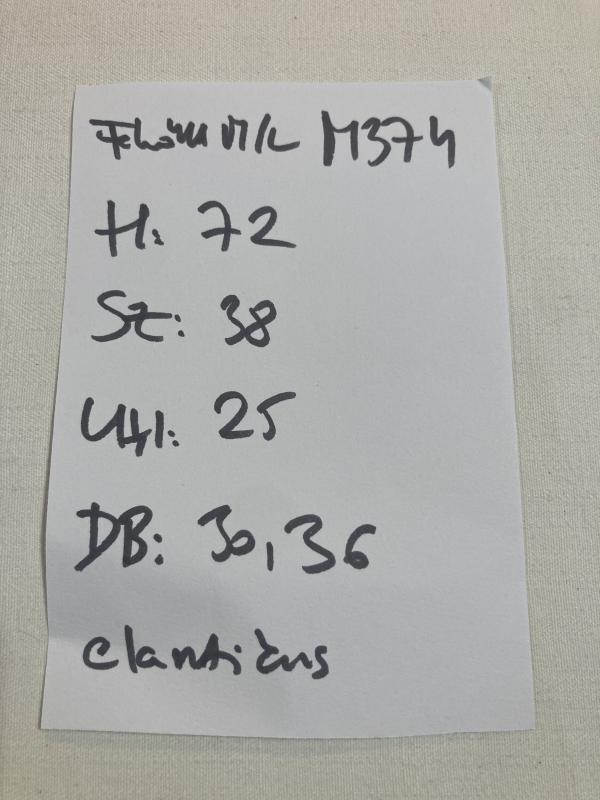 M/L M374
H: 72
Sz: 38
Ujj: 25
DB: 30, 36
elasztikus